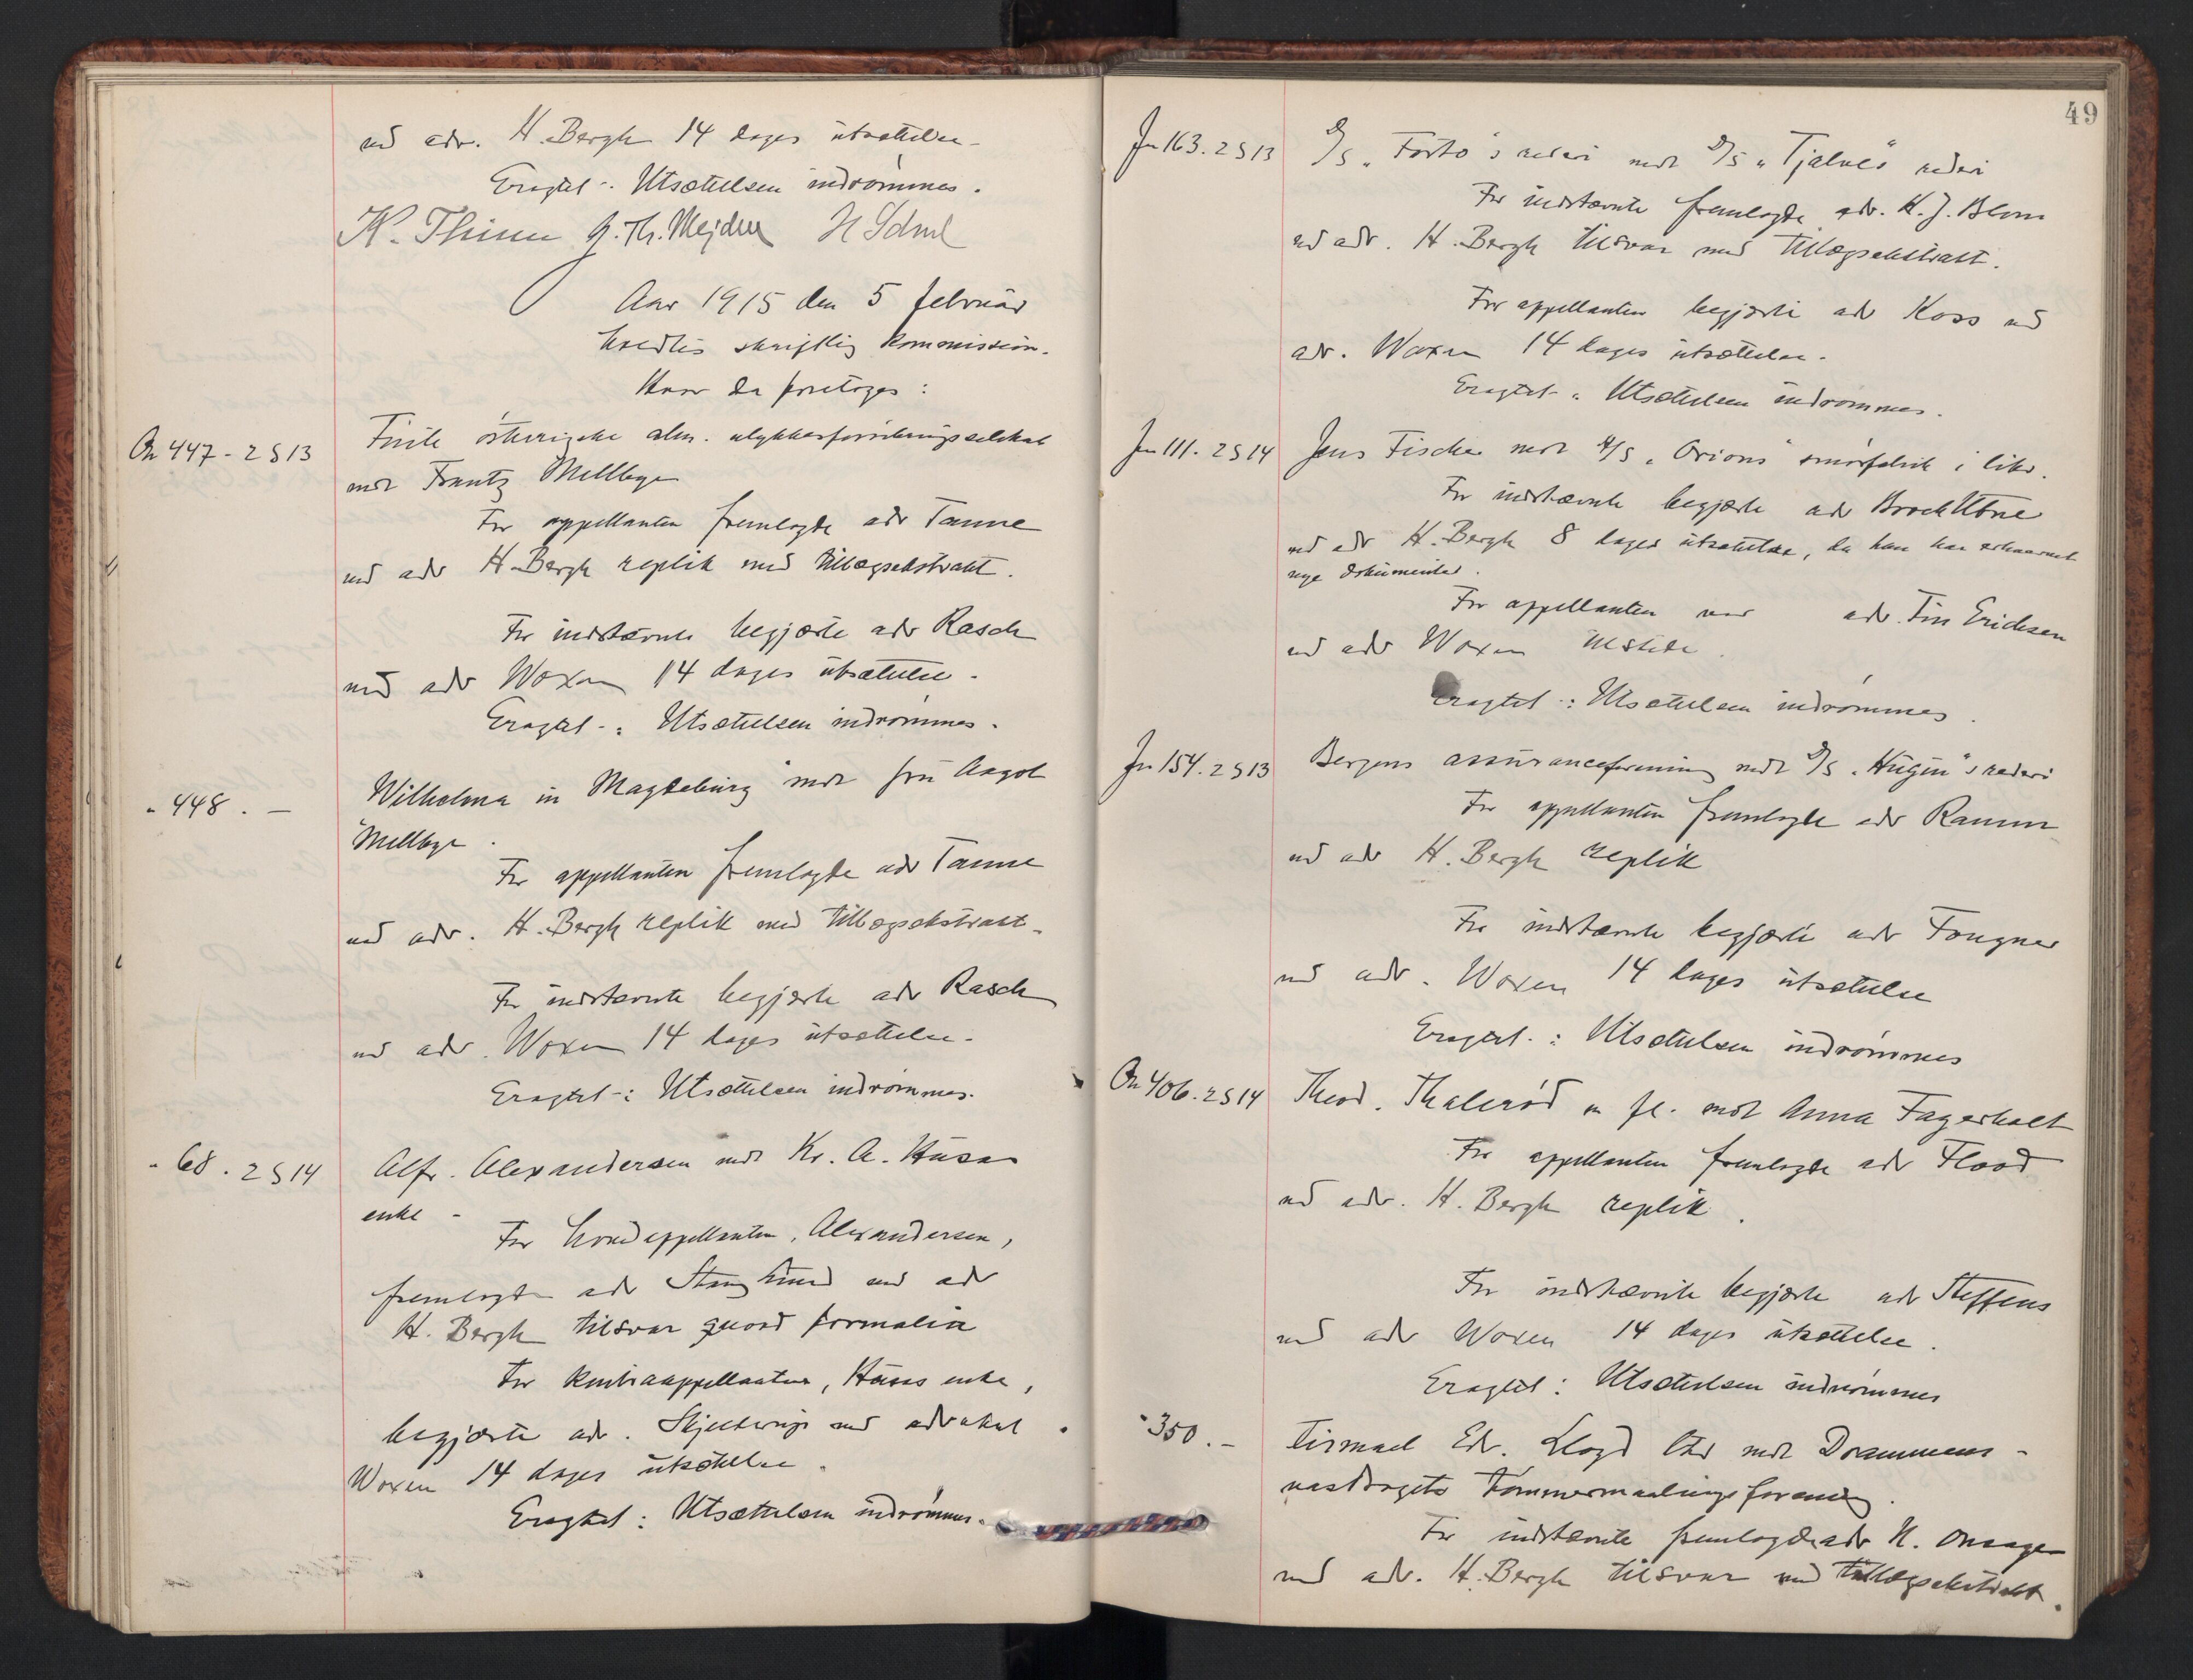 ved adv. H. Bergh 14 dages utsættelse.
Eragtet: Utsættelsen indrømmes.
K. Thinn G. Th. Mejdell
Aar 1915 den 5 februar
holdtes skriftlig kommission.
Hvor da foretoges:
On 447 - 2 S 13
Første österrigske alm. ulykkesforsikringsselskab
mot Frantz Mellbye
For appellanten fremlagde adv Tanne
ved adv H. Bergh replik med tillægsekstrakt.
For indstævnte begjærte adv Rasch
ved adv Woxen 14 dages utsættelse.
Eragtet: Utsættelsen indrømmes.
" 448. —
Wilhelma in Magdeburg mot fru Aagot
Mellbye.
For appellanten fremlagde adv Tanne
ved adv. H. Bergh replik med tillægsekstrakt.
For indstævnte begjærte adv Rasch
ved adv. Woxen 14 dages utsættelse.
Eragtet: Utsættelsen indrømmes.
" 68. 2 S 14
Alfr. Alexandersen mot Kr. A. Huses
enke.
For hovedappellanten, Alexandersen,
fremlagde adv Stang Lund ved adv
H. Bergh tilsvar quoad formalia
For kontraappellanten, Huses enke,
begjærte adv. Skjelderup ved advokat
Woxen 14 dages utsættelse.
Eragtet: Utsættelsen indrømmes.
49
Jn 163. 2 S 13
D/S "Forto"s rederi mot D/S "Tjalve"s rederi
For indstævnte fremlagde adv. K. J. Blom
ved adv. H. Bergh tilsvar med tillægsekstrakt.
For appellanten begjærte adv Koss ved
adv. Woxen 14 dages utsættelse.
Eragtet: Utsættelsen indrømmes.
Jn 111. 2 S 14
Jens Fischer mot A/S "Orions" smørfabrik i likv.
For indstævnte begjærte adv Brock Utne
ved adv H. Bergh 8 dages utsættelse, da han har erhvervet
nye dokumenter.
For appellanten var adv. Finn Erichsen
ved adv Woxen tilstede.
Eragtet: Utsættelsen indrømmes.
Jn 154. 2 S 13
Bergens assuranceforening mot D/S "Hugin"s rederi
For appellanten fremlagde adv Ramm
ved adv H. Bergh replik
For indstævnte begjærte adv Fougner
ved adv. Woxen 14 dages utsættelse
Eragtet: Utsættelsen indrømmes
On 406. 2 S 14
Theod. Thalerød m fl. mot Anna Fagerholt
For appellanten fremlagde adv Flood
ved adv. H. Bergh replik.
For indstævnte begjærte adv Steffens
ved adv Woxen 14 dages utsættelse.
Eragtet: Utsættelsen indrømmes
" 350. —
Firmaet Edv. Lloyd Ltd mot Drammens-
vasdragets Tømmermaalingsforening.
For indstævnte fremlagde adv N. Onsager
ved adv. H. Bergh tilsvar med tillægsekstrakt.